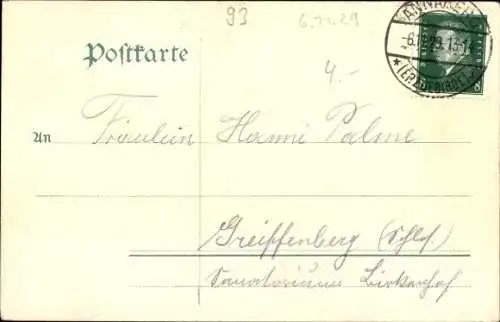 93
6.11.29
ANNABERG
-6.11.29.13-14
* (ERZGEBIRGE)
4.-
Postkarte
An Fräulein Hanni Palme
Greiffenberg (Schles.)
Sanatorium Birkenhof